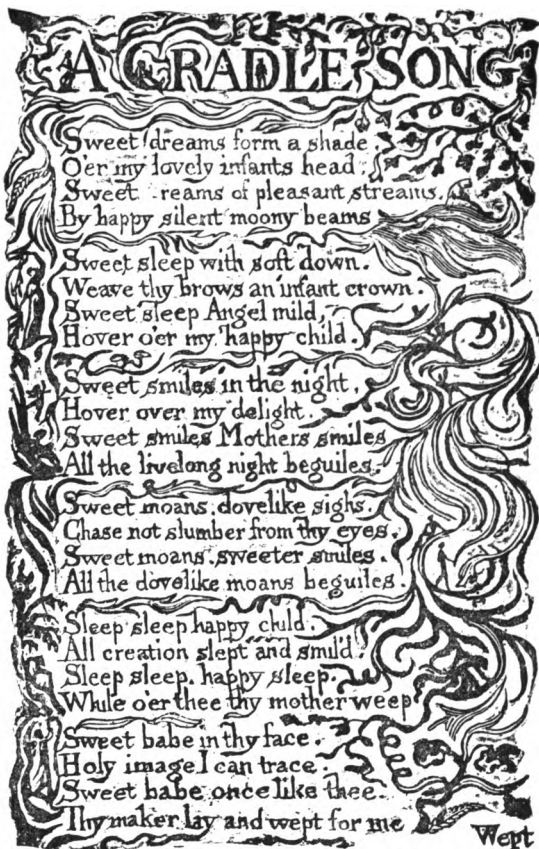 A CRADLE SONG
Sweet dreams form a shade,
O'er my lovely infants head.
Sweet reams of pleasant streams,
By happy silent moony beams
Sweet sleep with soft down.
Weave thy brows an infant crown.
Sweet sleep Angel mild,
Hover o'er my happy child.
Sweet smiles in the night,
Hover over my delight.
Sweet smiles Mothers smiles
All the livelong night beguiles.
Sweet moans, dovelike sighs,
Chase not slumber from thy eyes,
Sweet moans, sweeter smiles,
All the dovelike moans beguiles.
Sleep sleep happy child.
All creation slept and smil'd.
Sleep sleep, happy sleep,
While o'er thee thy mother weep
Sweet babe in thy face,
Holy image I can trace.
Sweet babe once like thee
Thy maker lay and wept for me
Wept